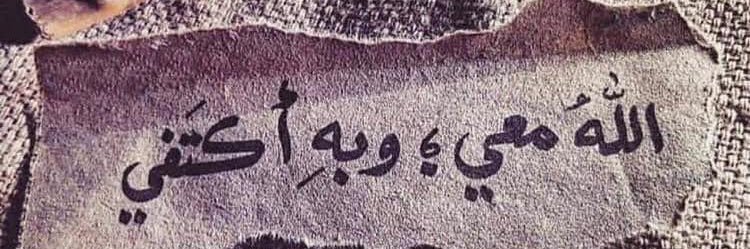 اللَّهُ معي ؛ وبهِ أَكتَفي